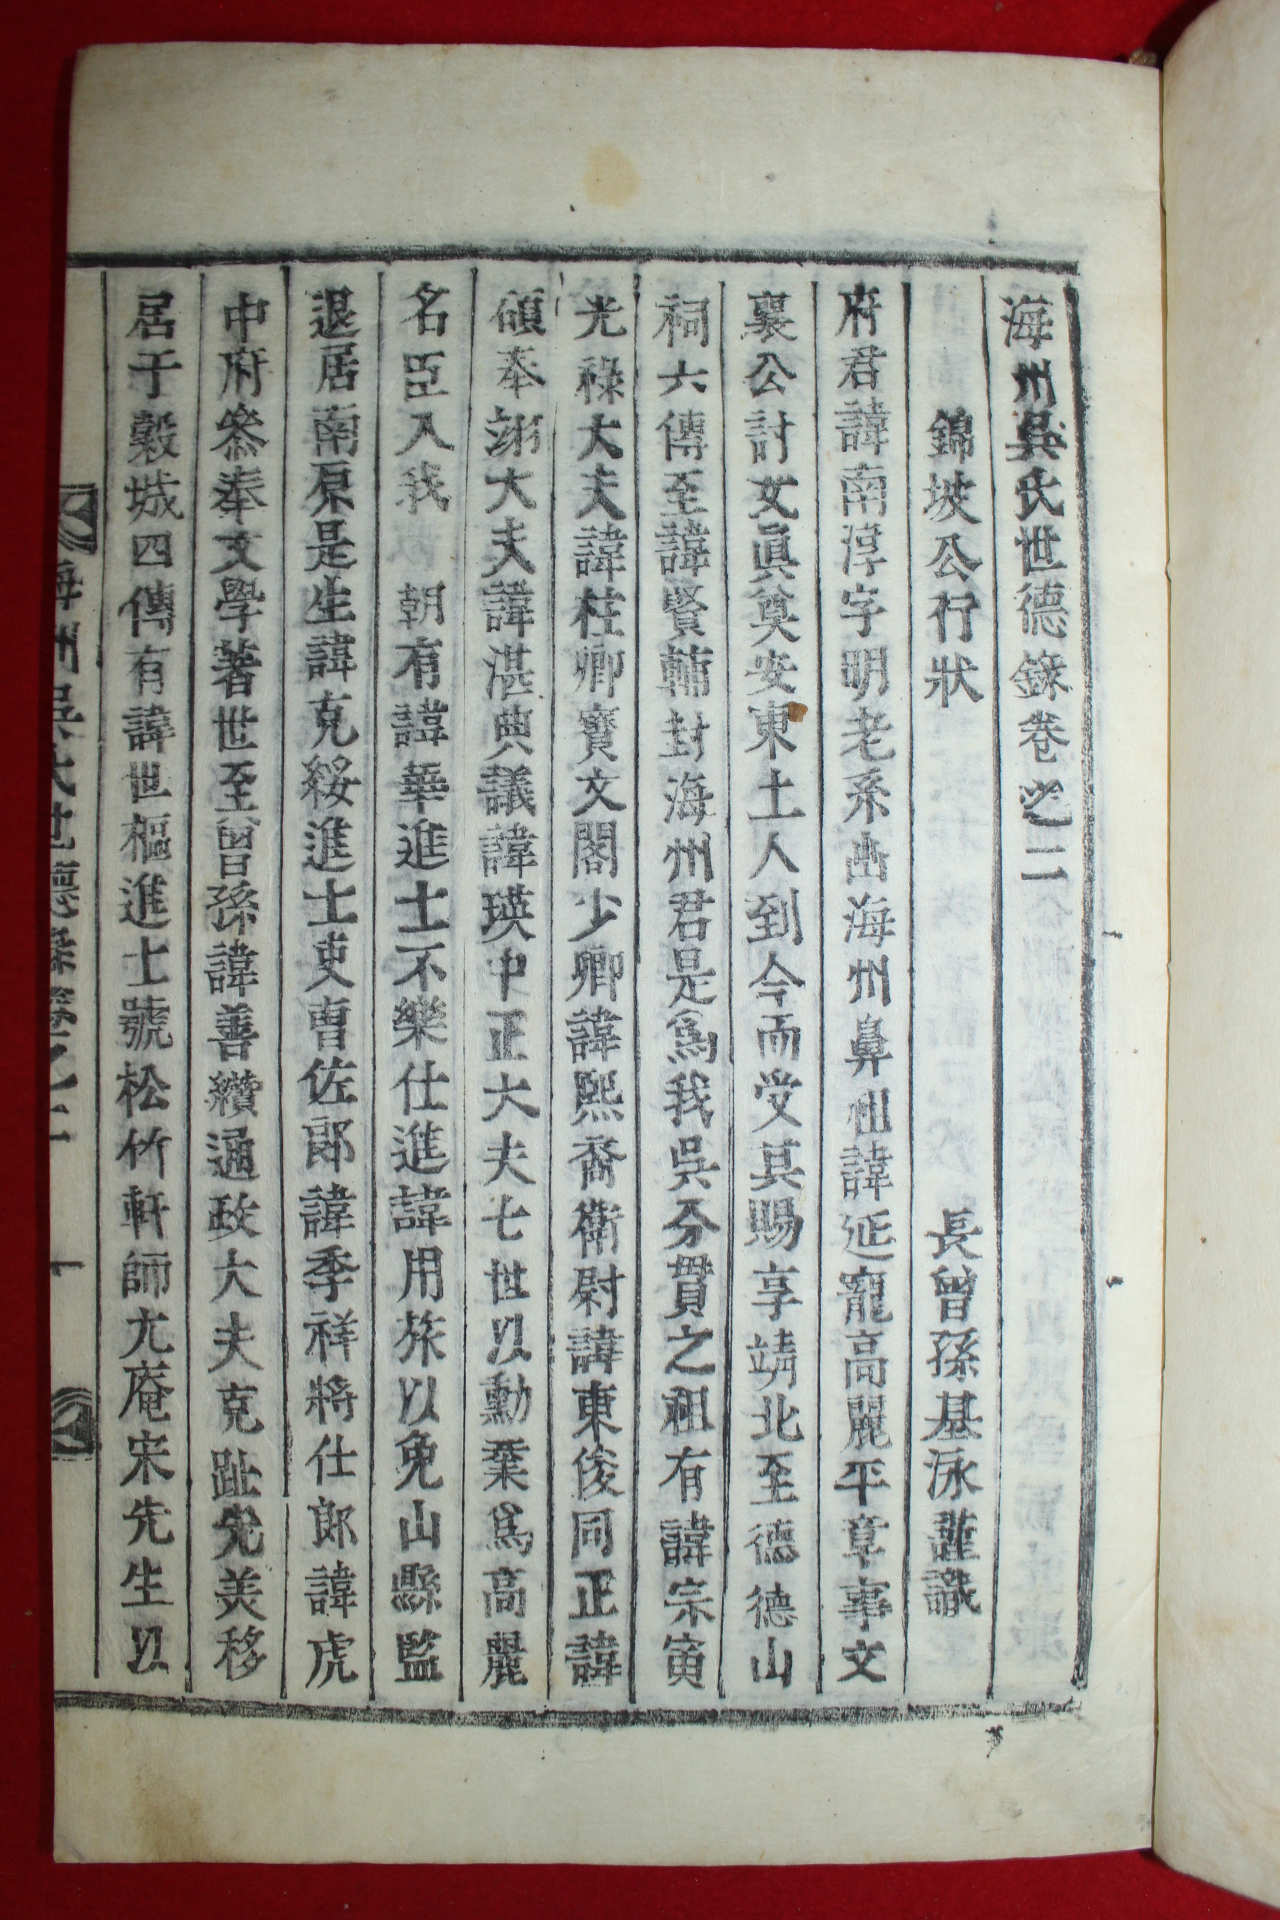 海州吳氏世德錄卷之二
錦坡公行狀 長曾孫基泳謹識
府君諱南淳字明老系出海州鼻祖諱延寵高麗平章事文
襄公討女眞奠安東土人到今而受其賜享靖北至德德山
祠六傳至諱賢輔封海州君是爲我吳分貫之祖有諱宗寅
光祿大夫諱柱卿寶文閣少卿諱熙裔衛尉諱東俊同正諱
碩奉翊大夫諱湛典議諱瑛中正大夫七世以勳業爲高麗
名臣入我 朝有諱華進士不樂仕進諱用旅以免山縣監
退居南原是生諱克綏進士吏曹佐郞諱季祥將仕郞諱虎
中府參奉文學著世至曾孫諱善纘通政大夫克趾先美移
居于穀城四傳有諱世樞進士號松竹軒師尤庵宋先生以
海州吳氏世德錄卷之二